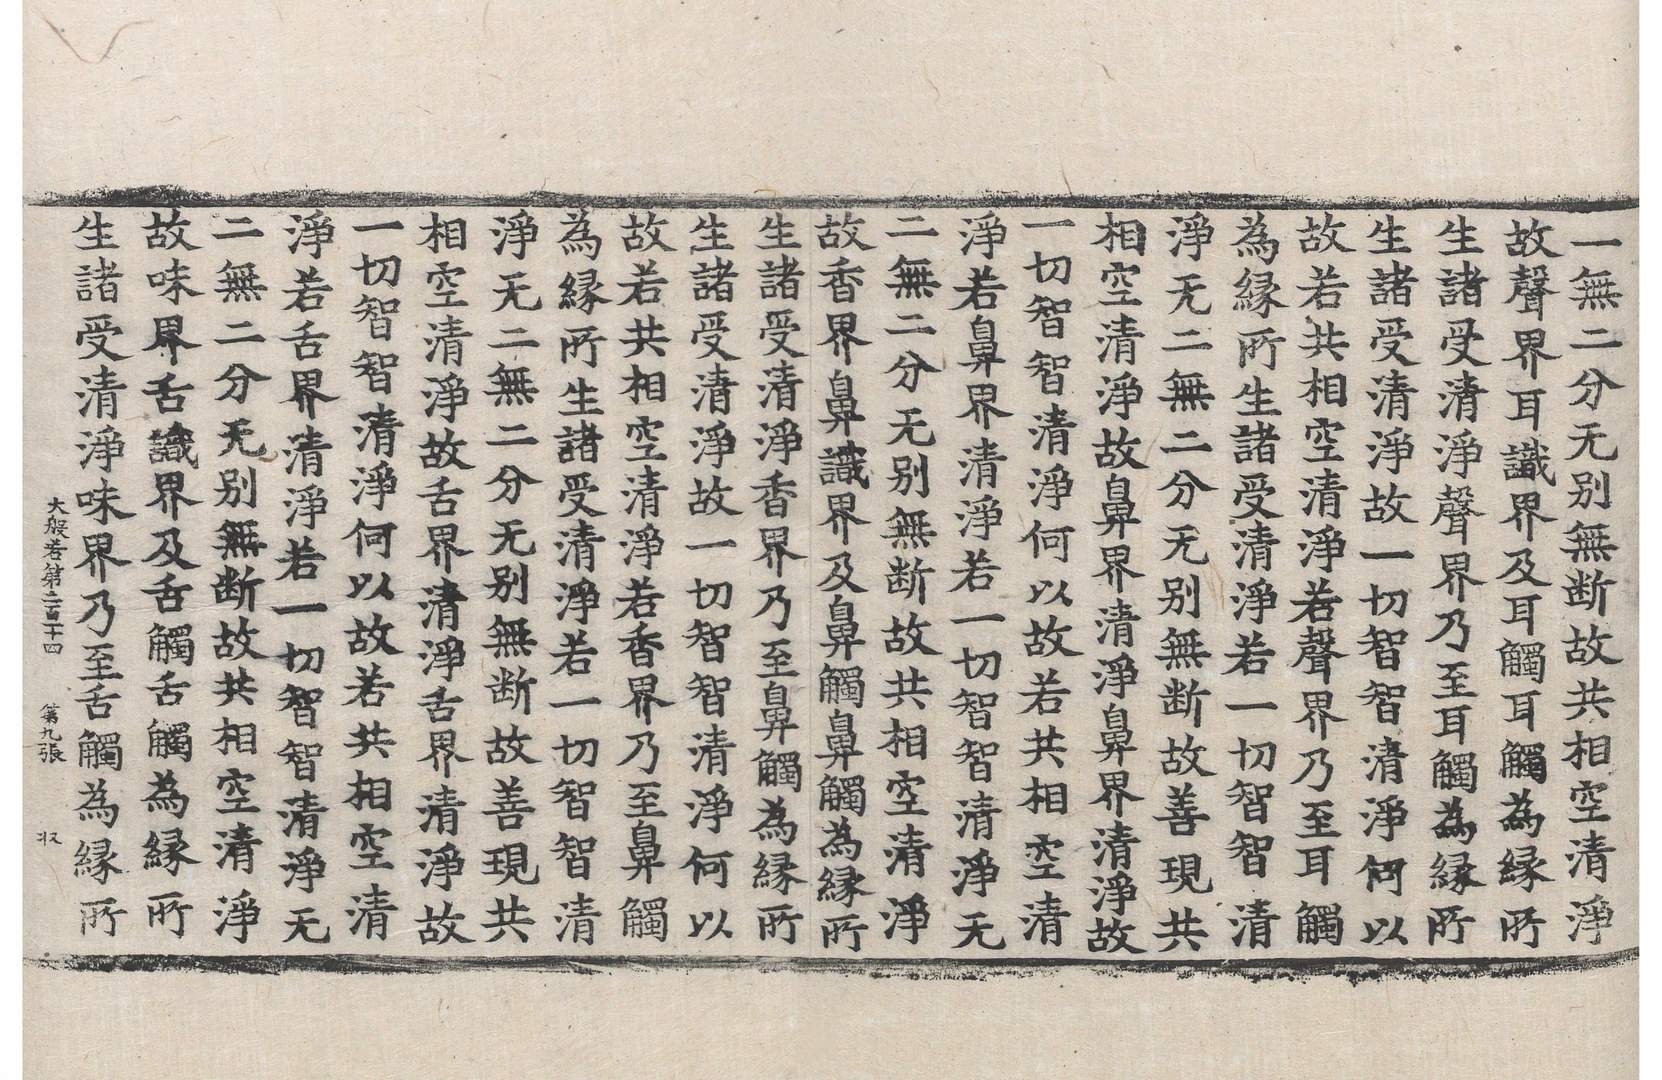 一無二分无别無断故共相空清淨
故聲界耳識界及耳觸耳觸為縁所
生諸受清淨聲界乃至耳觸為縁所
生諸受清淨故一切智智清淨何以
故若共相空清淨若聲界乃至耳觸
為縁所生諸受清淨若一切智智清
淨无二無二分无别無断故善現共
相空清淨故鼻界清淨鼻界清淨故
一切智智清淨何以故若共相空清
淨若鼻界清淨若一切智智清淨无
二無二分无别無断故共相空清淨
故香界鼻識界及鼻觸鼻觸為縁所
生諸受清淨香界乃至鼻觸為縁所
生諸受清淨故一切智智清淨何以
故若共相空清淨若香界乃至鼻觸
為縁所生諸受清淨若一切智智清
淨无二無二分无别無断故善現共
相空清淨故舌界清淨舌界清淨故
一切智智清淨何以故若共相空清
淨若舌界清淨若一切智智清淨无
二無二分无别無断故共相空清淨
故味界舌識界及舌觸舌觸為縁所
生諸受清淨味界乃至舌觸為縁所
大般若第二百十四 第九張 収